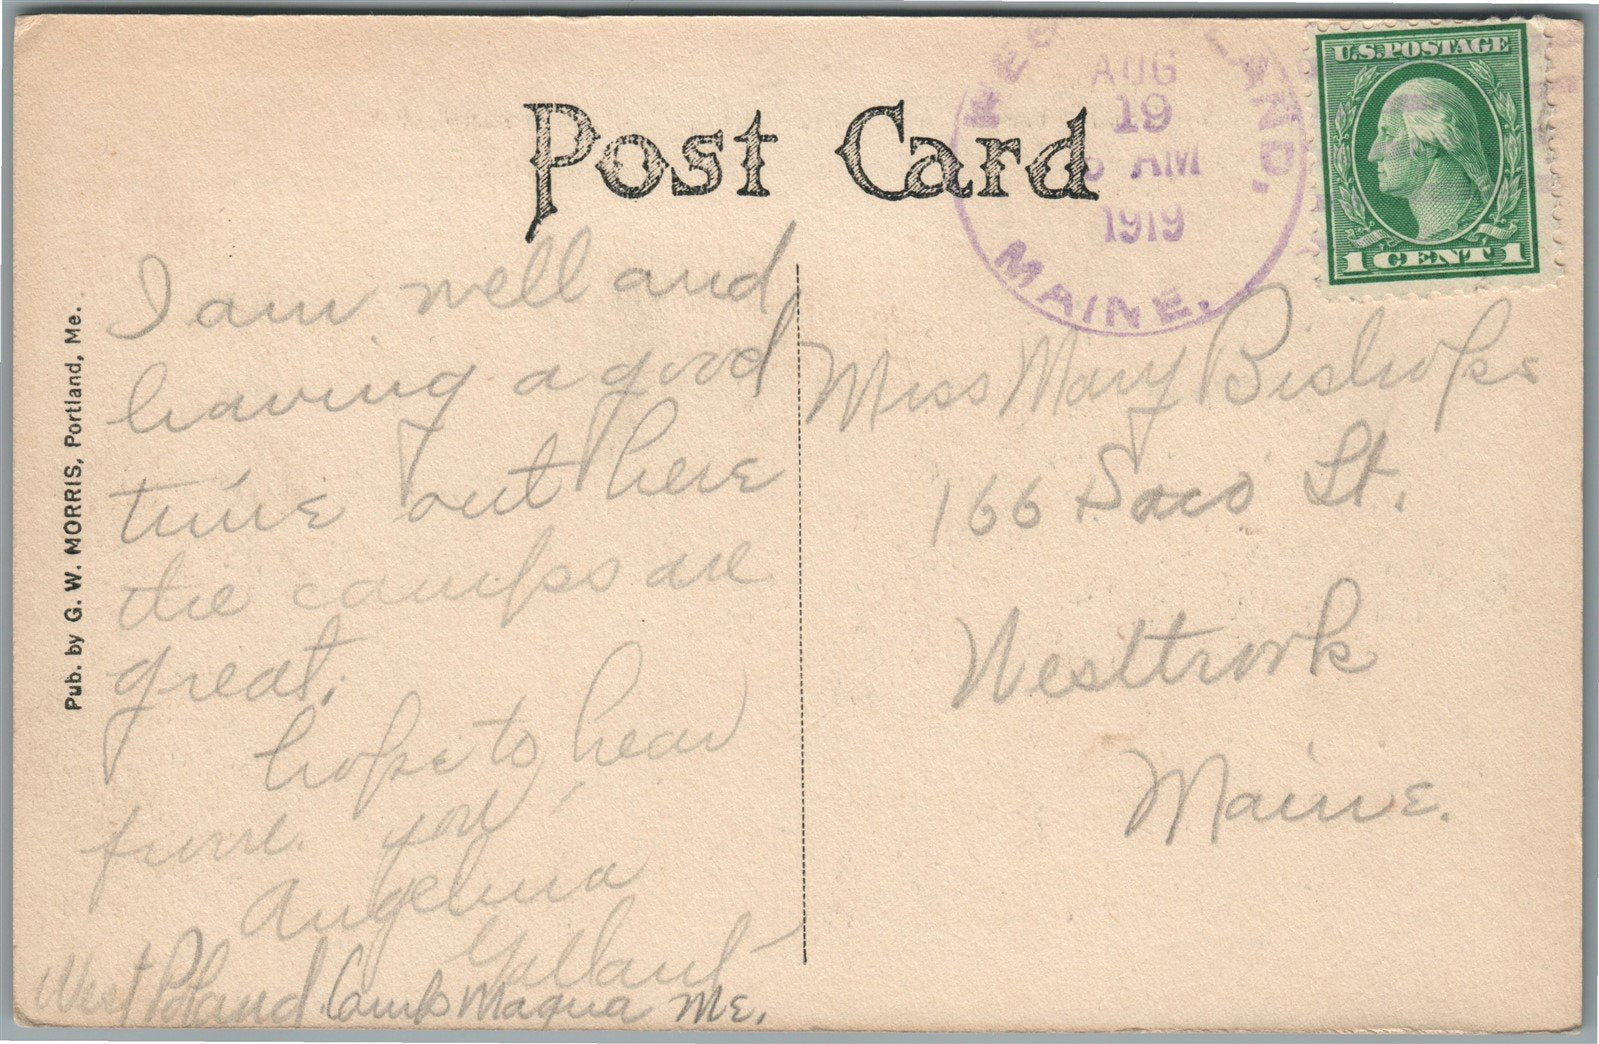 Post Card
AUG
19
AM
1919
MAINE.
U.S. POSTAGE
1 CENT 1
Pub. by G. W. MORRIS, Portland, Me.
I am well and
having a good
time out here
the camps are
great.
hope to hear
from you
Angelina
Gallant
West Poland Camp Maqua Me.
Miss Mary Bishop
166 Saco St.
Westbrook
Maine.